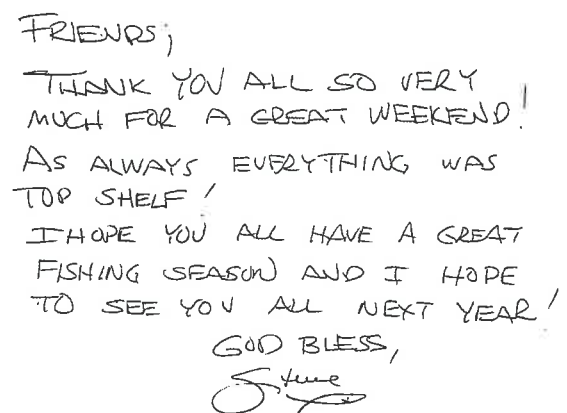 FRIENDS,
THANK YOU ALL SO VERY
MUCH FOR A GREAT WEEKEND!
AS ALWAYS EVERYTHING WAS
TOP SHELF!
I HOPE YOU ALL HAVE A GREAT
FISHING SEASON AND I HOPE
TO SEE YOU ALL NEXT YEAR!
GOD BLESS,
Steve